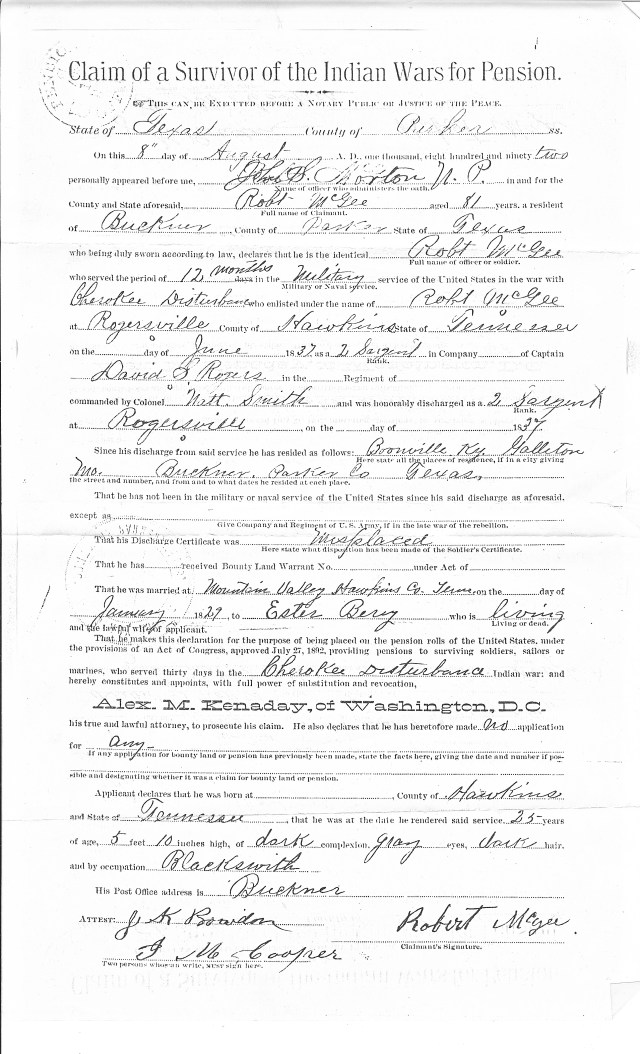 Claim of a Survivor of the Indian Wars for Pension.
THIS CAN BE EXECUTED BEFORE A NOTARY PUBLIC OR JUSTICE OF THE PEACE.
State of Texas County of Parker ss.
On this 8" day of August A. D., one thousand, eight hundred and ninety two
personally appeared before me, Morton N. P. in and for the
Name of officer who administers the oath.
County and State aforesaid, Robt McGee aged 81 years, a resident
Full name of Claimant.
of Buckner, County of Parker State of Texas
who being duly sworn according to law, declares that he is the identical Robt McGee
Full name of officer or soldier.
who served the period of 12 months days in the Military service of the United States in the war with
Military or Naval service.
Cherokee Disturbance who enlisted under the name of Robt McGee
at Rogersville County of Hawkins State of Tennessee
on the day of June 1837 as a 2 Sargent in Company of Captain
Rank.
David S. Rogers in the Regiment of
commanded by Colonel Natt. Smith and was honorably discharged as a 2 Sargent
Rank.
at Rogersville, on the day of 1837.
Since his discharge from said service he has resided as follows: Boonville Ky. Gallitin
Here state all the places of residence, if in a city giving
Mo. Buckner. Parker Co Texas.
the street and number, and from and to what dates he resided at each place.
That he has not been in the military or naval service of the United States since his said discharge as aforesaid.
except as
Give Company and Regiment of U. S. Army, if in the late war of the rebellion.
That his Discharge Certificate was Misplaced
Here state what disposition has been made of the Soldier's Certificate.
That he has received Bounty Land Warrant No. under Act of
That he was married at Mountain Valley Hawkins Co. Tenn on the day of
January 1829, to Ester Berry who is living
Living or dead.
and the lawful wife of applicant.
That he makes this declaration for the purpose of being placed on the pension rolls of the United States, under
the provisions of an Act of Congress, approved July 27, 1892, providing pensions to surviving soldiers, sailors or
marines, who served thirty days in the Cherokee Disturbance Indian war; and
hereby constitutes and appoints, with full power of substitution and revocation,
Alex. M. Kenaday, of Washington, D.C.
his true and lawful attorney, to prosecute his claim. He also declares that he has heretofore made no application
for any
If any application for bounty land or pension has previously been made, state the facts here, giving the date and number if pos-
sible and designating whether it was a claim for bounty land or pension.
Applicant declares that he was born at, County of Hawkins
and State of Tennessee, that he was at the date he rendered said service, 25 years
of age, 5 feet 10 inches high, of dark complexion, gray eyes, dark hair,
and by occupation Blackswith
His Post Office address is Buckner
ATTEST: J K Bowdon Robert McGee.
Claimant's Signature.
J M Cooper
Two persons who can write, MUST sign here.